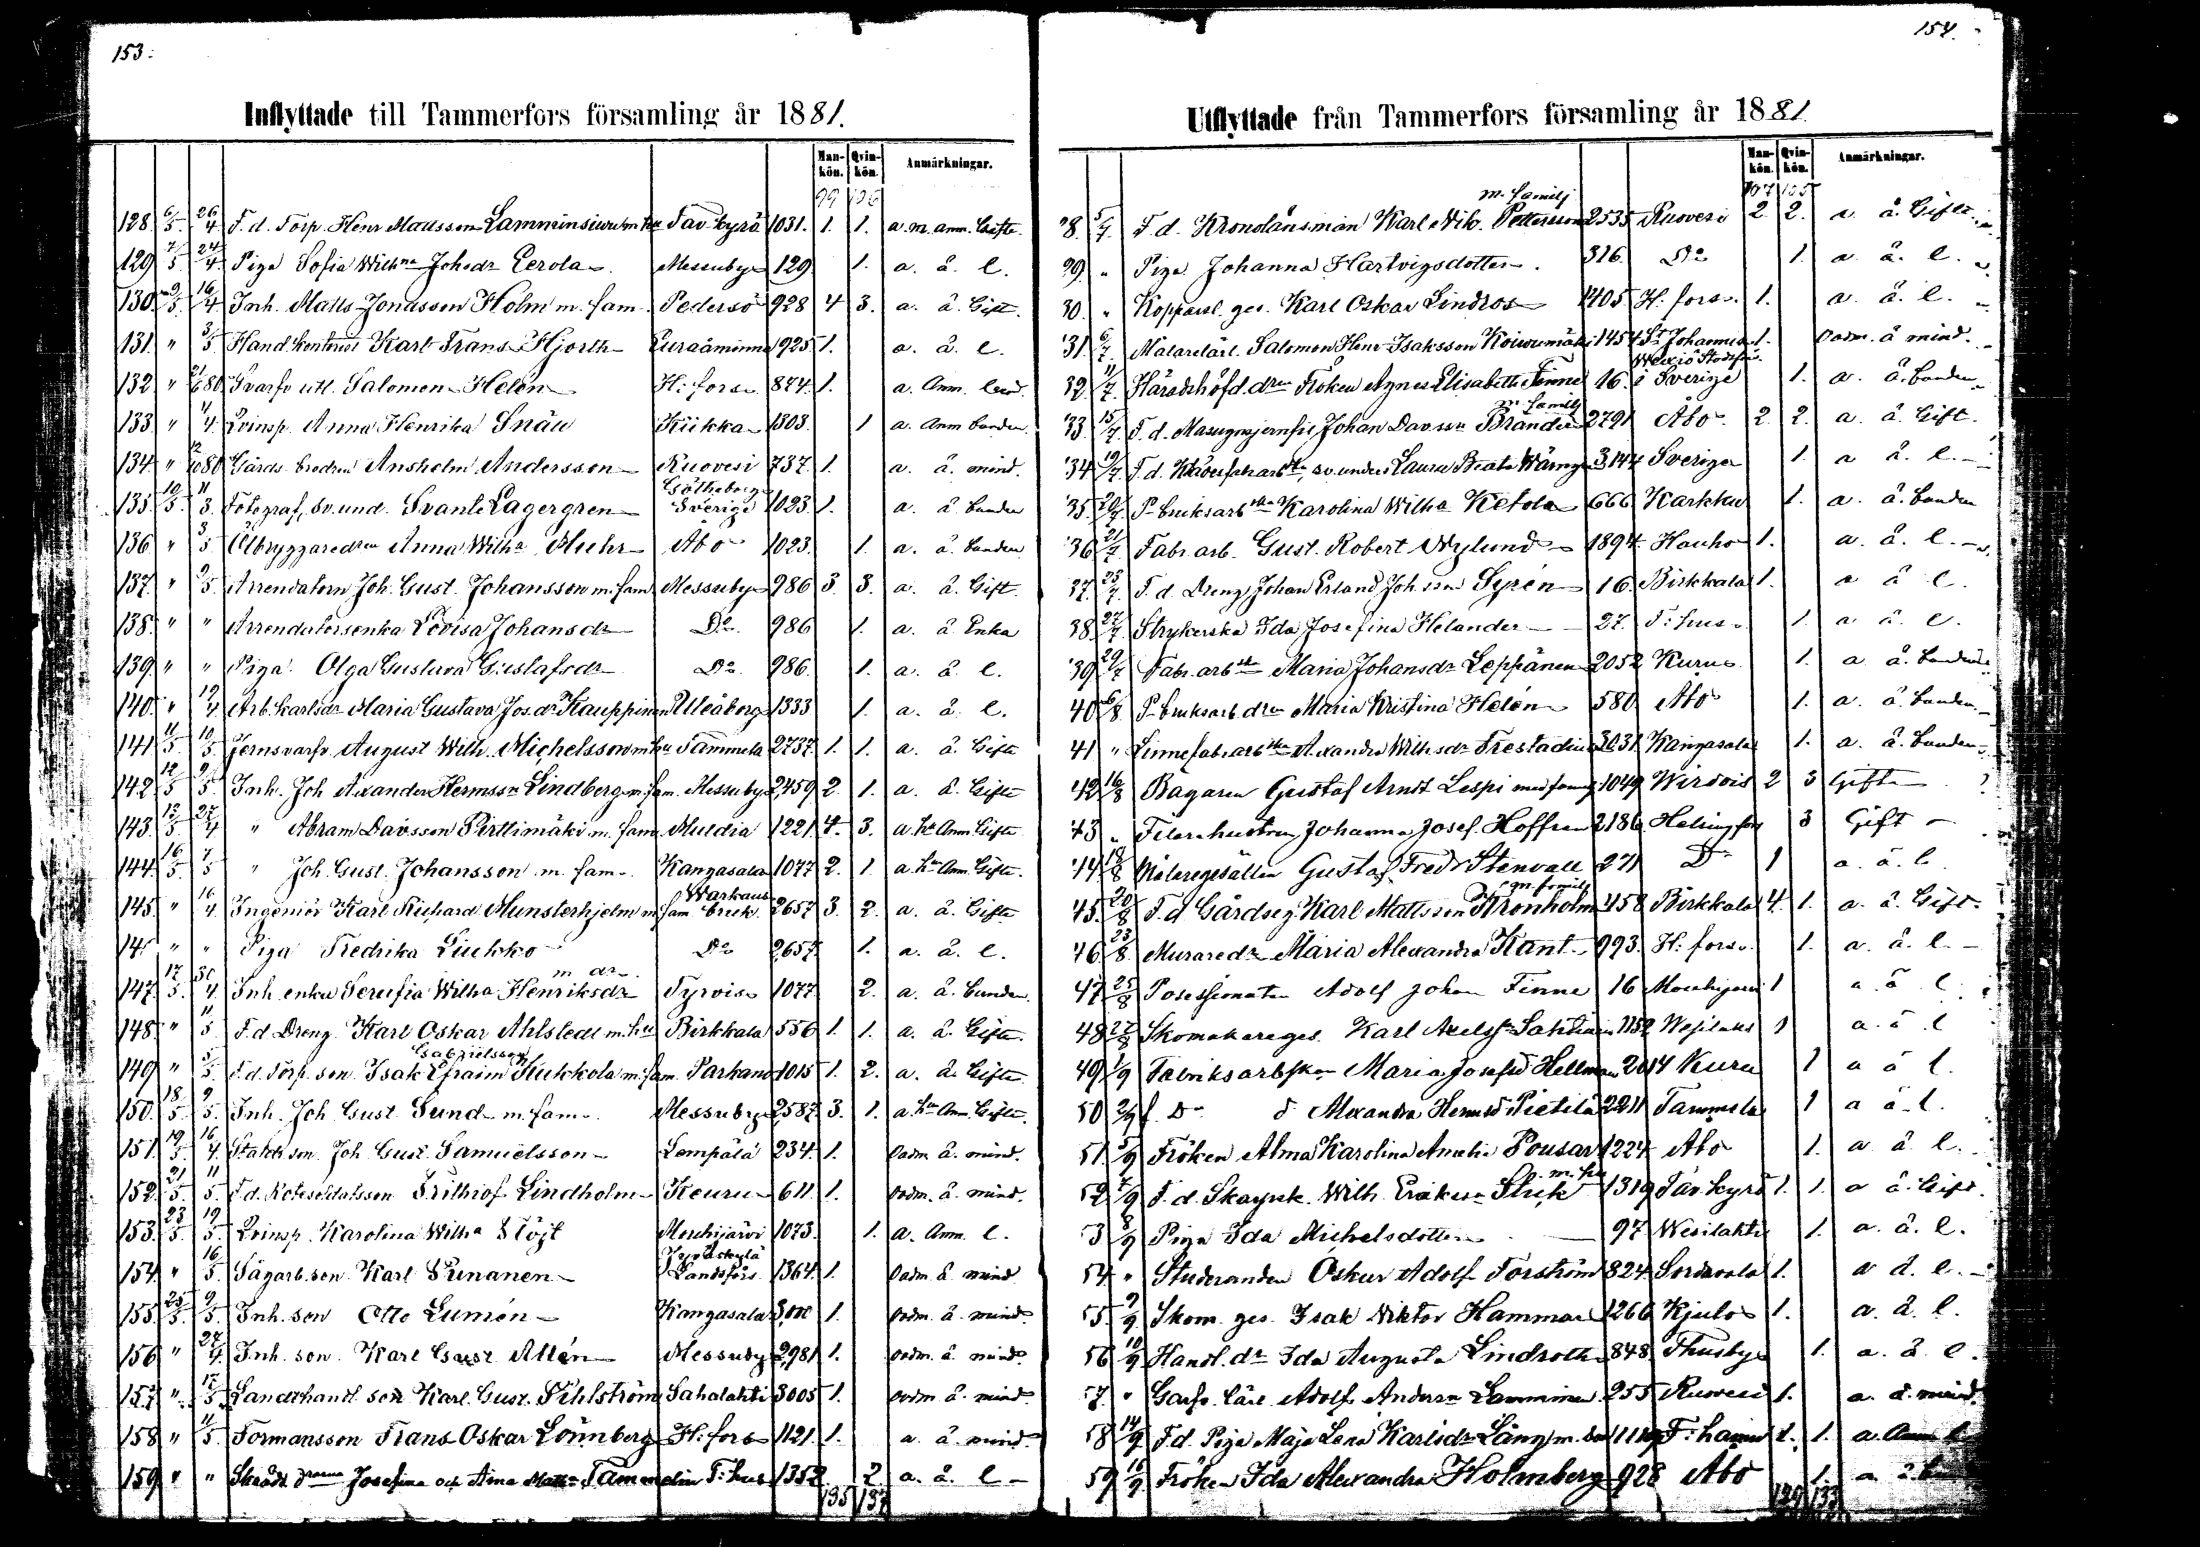 153.
Inflyttade till Tammerfors församling år 1881.
Man-kön. Qvin-kön. Anmärkningar.
99 136
128. 6/5 26/4 F. d. Torp. Henr Mattsson Tav. kyrö 1031. 1. 1. a. m. anm. Gifte
129 7/5 24/4 Piga Sofia Wilhna Johsdr Eerola Messuby 129 1. a. å. l.
130 9/5 16/4 Inh. Matts Jonasson Holm m. fam. Pedersö 928 4 3. a. å. Gift.
131. " 3/5 Hand. kontorist Karl Frans Hjorth Euraåminne 925 1. a. å. l.
132 " 21/6 80 Svarfv Salomon Helén H:fors 874. 1. a. Anm. led.
133. " 11/4 Qvinsp. Anna Henrika Snäll Kiikka 1303. 1 a. Anm banden.
134 " 12/10 80 Gårds brodren Ansholm Andersson Ruovesi 737. 1. a. å. mind.
135. 10/5. 11/3. Fotograf, sv. und. Svante Lagergren Götheborg Sverige 1023. 1. a. å banden
136 " 3/5 Ölbryggaredrn Anna Wilha Muhr Åbo 1023. 1. a. å. banden
137. " 9/5 Arrendatorn Joh. Gust. Johansson m. fam Messuby 986 3. 3. a. å. Gift.
138. " " Arrendatorsenka Lovisa Johansdr Do 986 1. a. å Enka
139. " " Piga Olga Gustava Gustafsdr Do 986. 1. a. å. l.
140. " 19/4 Arb. karlsdr Maria Gustava Jos.dr Kauppinen Uleåborg 1333 1. a. å. l.
141 11/5 10/5 Jernsvarfv. August Wilh. Michelsson m hu Tammela 2737. 1. 1. a. å. Gifte
142 12/5 9/5. Inh. Joh Alexander Hermssn Lindberg m. fam. Messuby 2,459 2. 1. a. å. Gifte
143. 13/5 27/4 " Abram Davsson Pirttimäki m. fam Multia 1221 4. 3. a. hr Anm. Gifte
144. 16/5. 7/5 " Joh. Gust. Johansson m. fam. Kangasala 1077 2. 1. a. hr Anm. Gifte.
145. " 16/4. Ingeniör Karl Rikhard Munsterhjelm m fam Warkaus bruk. 2657. 3. 2. a. å. Gifte
14 " " Piga Fredrika Liukko Do 2,657. 1. a. å. l.
m dr
147. 17/5. 30/4. Inh. enka Serafia Wilha Henriksdr Tyrvis 1077 2. a. å. banden.
148. " 11/5 F. d Dreng Karl Oskar Ahlstedt m. hu Birkkala 556 1. 1. a. å. Gifte.
Gabrielsson
149 " 5/5. F. d. Torp. son Isak Efraim Kukkola m. fam. Parkano 1015 1. 2. a. å. Gifte
150. 18/5. 9/5. Inh. Joh Gust. Sund m. fam. Messuby 2,587. 3. 1. a hr Anm. Gifte.
151. 19/5. 16/4. son. Joh Gust. Samuelsson Lempälä 234. 1. Oadm. å. mind.
152. 21/5. 11/5. F. d. Rotesoldatsson Frithiof Lindholm Keuru 611. 1. Oadm. å. mind.
153. 23/5. 19/5. Qvinsp. Karolina Wilha Slöjt Mouhijärvi 1073. 1. a. Anm. l.
154. " 16/5. Sågarb. son. Karl Punanen Jyväskylä Landsförs. 1364. 1. Oadm. å. mind.
155. 25/5. 9/5. Inh. son Otto Lumén Kangasala 1. oadm. å. mind.
156 " 27/4. Inh. son. Karl Gust Allén Messuby 2,981 1. oadm. å. mind.
157. " 17/5 Landthandl. son Karl. Gust. Pihlström Sahalahti 3005 1. oadm. å. mind.
158 " 11/5. Formansson Frans Oskar Lönnberg H:fors 1121. 1. a. å. mind.
159 " " Josefina och Aina Tammelin T:hus 1352. 2. a. å. l
135 137
154.
Utflyttade från Tammerfors församling år 1881
Man-kön. Qvin-kön. Anmärkningar.
107 105
m. familj
28. 5/7. F. d. Kronolänsman Karl Nik. Pettersson 2535 Ruovesi 2. 2. a å. Gifte
29. " Piga Johanna Hartvigsdotter. 316. Do 1. a å. l.
30. " Kopparsl. ges. Karl Oskar Lindros 1405. H:fors. 1. a. å. l.
31. 6/7. Målarelärl. Salomon Henr Isaksson Koivumäki 1454 St Johannis 1. oadm. å mind.
32. 11/7. Häradshöfd. drn Fröken Agnes Elisabeth Finne 16. Wexiö Stadsför. i Sverige 1. a. å. banden
m. familj
33. 15/7. F. d. Masugnsjernfri Johan Davssn Brander 2791 Åbo 2. 2. a. å. Gift.
34. 19/7. sv. under Laura Beata 3144 Sverige 1. a å. l.
35. 20/7. P. bruksarbska Karolina Wilha Ketola 666 Karkku 1. a. å. banden
36 21/7. Fabr. arb. Gust. Robert Nylund 1894. Hauho 1. a. å. l.
37. 23/7. F. d. Dreng Johan Erland Joh. son Syrén 16. Birkkala 1. a å l.
38. 27/7. Strykerska Ida Josefina Helander 27. T:hus 1. a å. l.
39 29/7 Fabr. arbska Maria Johansdr Leppänen 2052 Kuru 1. a å. banden
40 6/8 P. bruksarb. drn Maria Kristina Helén 580 Åbo 1. a. å. banden
41 " Linnefabr.arbska Alexandra Wilhsdr 3031 Kangasala 1. a. å. banden
42 16/8 Bagaren Gustaf Arndt Lespi med familj 1049 Wirdois 2 3 Gifte
43 " Filarehustrun Johanna Josef. Hoffrén 2186. Helsingfors 3 Gift
44 18/8 Målaregesällen Gustaf Fredr Stenvall 271 Do 1 a. å. l.
m familj
45. 20/8 F. d Gårdseg. Karl Mattsson Kronholm 458 Birkkala 4. 1. a. å. Gift.
46 23/8. Muraredr Maria Alexandra Kant 993. H:fors. 1. a. å. l.
47 25/8 Possessionaten Adolf Johan Finne 16 Mouhijärvi 1 a. å l.
48 27/8 Skomakareges. Karl 1152 Wesilaks 1 a. å l
49 1/9 Fabriksarbskan Maria Josefsd Hellman 2014 Kuru 1 a å l.
50 2/9 f. Do d Alexandra Hermsd Pietilä 2211 Tammela 1 a å l.
51. 5/9 Fröken Alma Karolina Amalia Pousar 1224 Åbo 1. a å l.
m. hu
52 7/9 F. d. Wilh. Erikssn 1319 Tav. kyrö 1. 1. a å. Gift.
53 8/9 Piga Ida Michelsdotter 97 Wesilahti 1. a. å. l.
54 " Studeranden Oskar Adolf Forström 824 Sordavala 1. a å. l.
55. 9/9. Skom. ges. Isak Wiktor Hammar 1266 Kjulo 1. a. å. l.
56 10/9 Handl. dr Ida Augusta Lindroth 848. Thusby 1. a. å. l.
57. " Garfv. lärl. Adolf Anderssn Lamminen 255 Ruovesi 1. a. å. mind.
58 14/9 F. d. Piga Maja Lena Karlsdr Lång m. son F:hamn 1. 1. a. Anm l
59 16/9. Fröken Ida Alexandra Holmberg 928 Åbo 1. a å
129 133